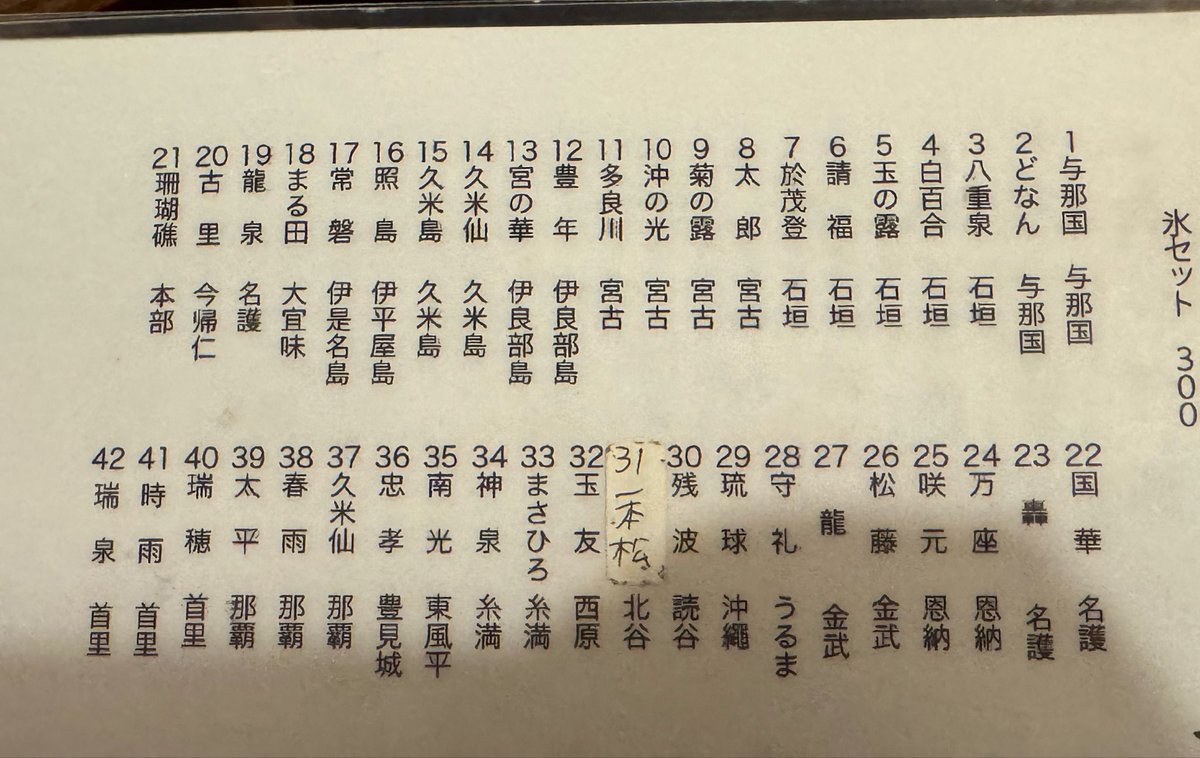 氷セット 300
1与那国 与那国
2どなん 与那国
3八重泉 石垣
4白百合 石垣
5玉の露 石垣
6請福 石垣
7於茂登 石垣
8太郎 宮古
9菊の露 宮古
10沖の光 宮古
11多良川 宮古
12豊年 伊良部島
13宮の華 伊良部島
14久米仙 久米島
15久米島 久米島
16照島 伊平屋島
17常盤 伊是名島
18まる田 大宜味
19龍泉 名護
20古里 今帰仁
21珊瑚礁 本部
22国華 名護
23轟 名護
24万座 恩納
25咲元 恩納
26松藤 金武
27龍 金武
28守礼 うるま
29琉球 沖縄
30残波 読谷
31一本松 北谷
32玉友 西原
33まさひろ 糸満
34神泉 糸満
35南光 東風平
36忠孝 豊見城
37久米仙 那覇
38春雨 那覇
39太平 那覇
40瑞穂 首里
41時雨 首里
42瑞泉 首里